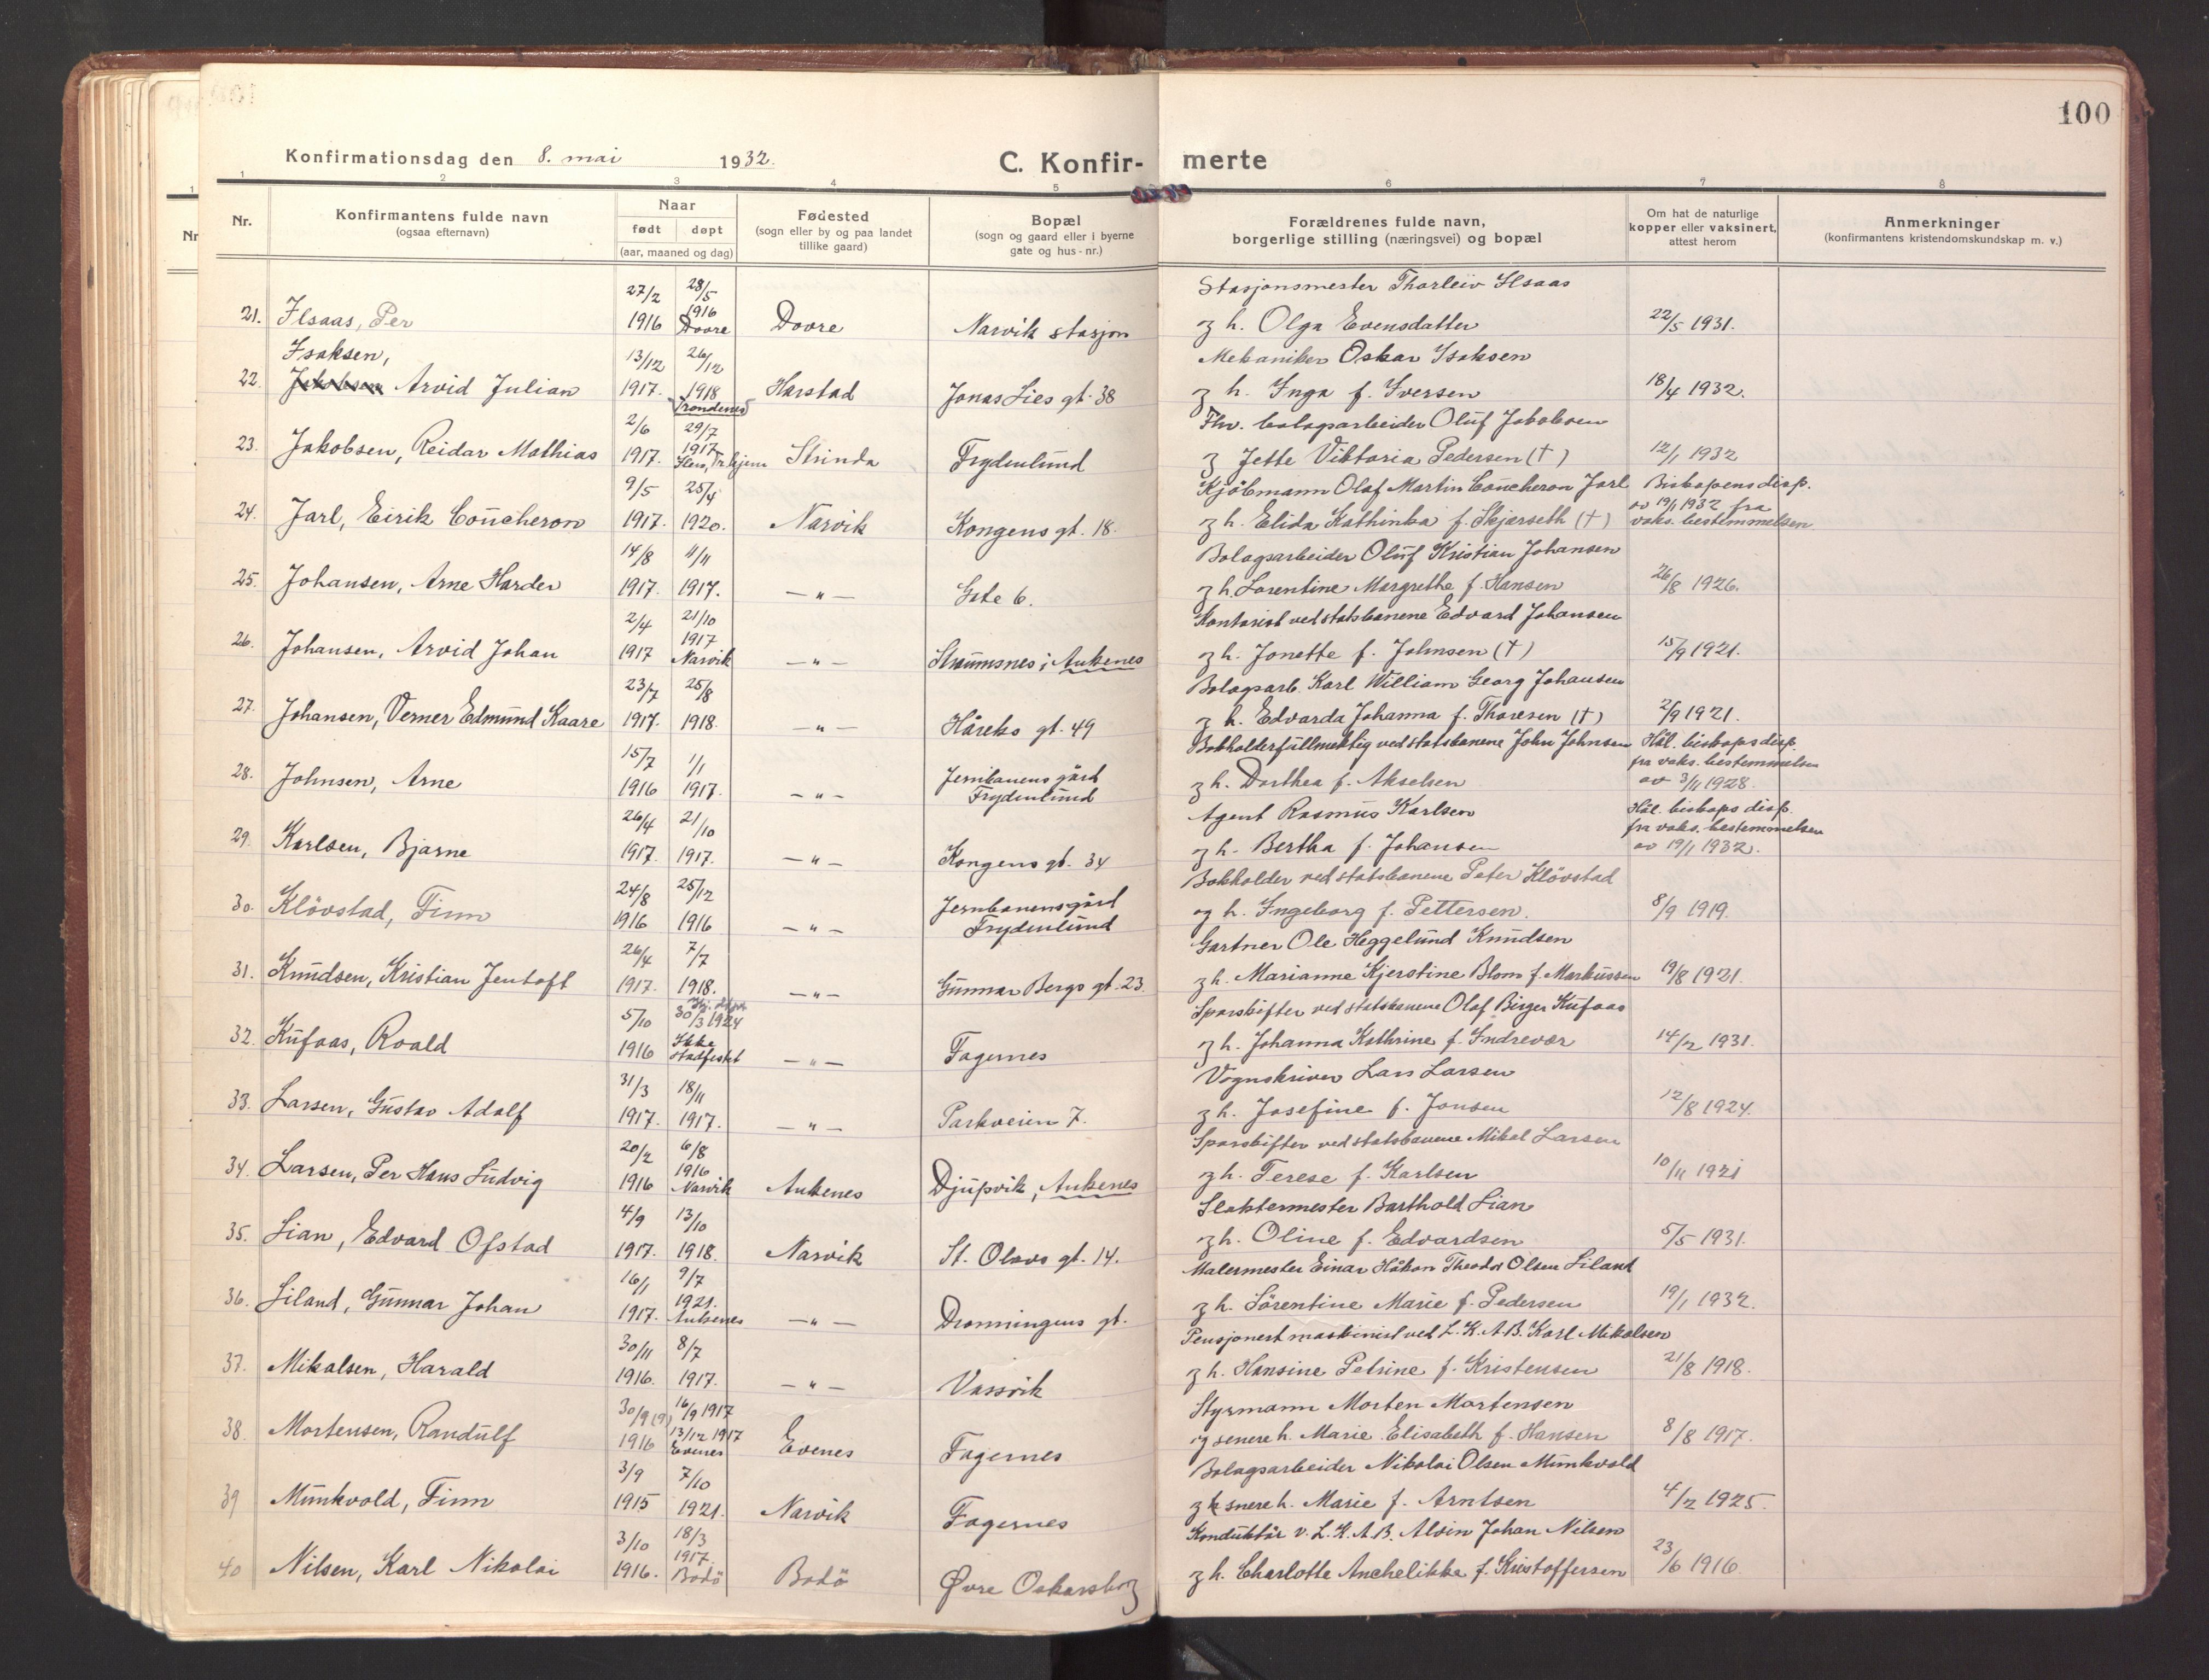 100
Konfirmationsdag den 8. mai 1932.
C. Konfir-
merte
1 2 3 4 5 6 7 8
Nr.
Konfirmantens fulde navn
(ogsaa efternavn)
Naar
født døpt
(aar, maaned og dag)
Fødested
(sogn eller by og paa landet
tillike gaard)
Bopæl
(sogn og gaard eller i byerne
gate og hus-nr.)
Forældrenes fulde navn,
borgerlige stilling (næringsvei) og bopæl
Om hat de naturlige
kopper eller vaksinert,
attest herom
Anmerkninger
(konfirmantens kristendomskundskap m. v.)
27/2 28/5 Stasjonsmester Thorleiv Ilsaas
21. Ilsaas, Per 1916 1916 Dovre Dovre Narvik stasjon og h. Olga Evensdatter 22/5 1931.
Isaksen, 13/12 26/12 Mekaniker Oskar Isaksen
22. Arvid Julian 1917. 1918 Trondenes Harstad Jonas Lies gt. 38 og h. Inga f. Iversen 18/4 1932.
2/6 29/7 Fhv. bolagsarbeider Oluf Jakobsen
23. Jakobsen, Reidar Mathias 1917. 1917 Strinda Frydenlund og Jette Viktoria Pedersen (†) 12/1 1932
9/5 25/4 Kjöbmann Olaf Martin Coucheron Jarl Biskopens disp.
24. Jarl, Eirik Coucheron 1917. 1920. Narvik Kongens gt. 18. og h. Elida Kathinka f. Skjærseth (†) av 19/1 1932 fra vaks. bestemmelsen
14/8 11/11 Bolagsarbeider Oluf Kristian Johansen
25. Johansen, Arne Harder 1917. 1917. — " — Gate 6. og h. Lorentine Margrethe f. Hansen 26/8 1926.
2/4 21/10 Kontorist ved statsbanene Edvard Johansen
26. Johansen, Arvid Johan 1917 1917 Narvik — " — Straumsnes i Ankenes og h. Jonette f. Johnsen (†) 15/9 1921.
23/7 25/8 Bolagsarb. Karl William Georg Johansen
27. Johansen, Verner Edmund Kaare 1917. 1918. — " — Håreks gt. 49 og h. Edvarda Johanna f. Thoresen (†) 2/9 1921.
15/7 1/1 Bokholderfullmektig ved statsbanene John Johnsen Hål. biskops disp.
28. Johnsen, Arne 1916 1917. — " — Jernbanens gård Frydenlund og h. Dorthea f. Akselsen fra vaks. bestemmelsen av 3/11 1928.
26/4 21/10 Agent Rasmus Karlsen Hål. biskops disp.
29. Karlsen, Bjarne 1917. 1917. — " — Kongens gt. 34 og h. Bertha f. Johansen fra vaks. bestemmelsen av 19/1 1932.
24/8 25/12 Bokholder ved statsbanene Peter Klövstad
30. Klövstad, Finn 1916 1916 — " — Jernbanens gård Frydenlund og h. Ingeborg f. Pettersen. 8/9 1919.
26/4 7/7 Gartner Ole Heggelund Knudsen
31. Knudsen, Kristian Jentoft 1917. 1918. — " — Gunnar Bergs gt. 23. og h. Marianne Kjerstine Blom f. Markussen 19/8 1921.
5/10 30/3 1924 Sporskifter ved statsbanene Olaf Birger Kufaas
32. Kufaas, Roald 1916 Ikke stadfestet — " — Fagernes og h. Johanna Kathrine f. Indrevær 14/2 1931.
31/3 18/11 Vognskriver Lars Larsen
33. Larsen, Gustav Adolf 1917. 1917. — " — Parkveien 7. og h. Josefine f. Jonsen 12/8 1924.
20/2 6/8 Sporskifter ved statsbanene Mikal Larsen
34. Larsen, Per Hans Ludvig 1916 1916 Narvik Ankenes Djupvik, Ankenes og h. Terese f. Karlsen 10/11 1921
4/9 13/10 Slaktermester Barthold Lian
35. Lian, Edvard Ofstad 1917. 1918. Narvik St. Olavs gt. 14. og h. Oline f. Edvardsen 5/5 1931.
16/1 9/7 Malermester Einar Håkon Theodor Olsen Liland
36. Liland, Gunnar Johan 1917. 1921. Ankenes — " — Dronningens gt. og h. Sörentine Marie f. Pedersen 19/1 1932.
30/11 8/7 Pensjonert maskinist ved L.K.A.B. Karl Mikalsen
37. Mikalsen, Harald 1916. 1917. — " — Vassvik og h. Hansine Petrine f. Kristensen 21/8 1918.
30/9 (?) 16/9 1917 Styrmann Morten Mortensen
38. Mortensen, Randulf 1916 13/12 1917 Evenes Evenes Fagernes og senere h. Marie Elisabeth f. Hansen 8/8 1917.
3/9 7/10 Bolagsarbeider Nikolai Olsen Munkvold
39 Munkvold, Finn 1915 1921. Narvik Fagernes og snere h. Marie f. Arntsen 4/2 1925.
3/10 18/3 Konduktör v. L.K.A.B. Alvin Johan Nilsen
40 Nilsen, Karl Nikolai 1916. 1917 Bodö Bodö Øvre Oskarsborg og h. Charlotte Anchelikke f. Kristoffersen 23/6 1916.